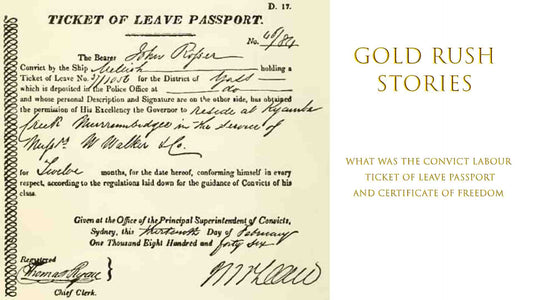 D. 17.
TICKET OF LEAVE PASSPORT.
No. 46/84
The Bearer John Rosser
Convict by the Ship holding a
Ticket of Leave No. for the District of Yass
which is deposited in the Police Office at do
and whose personal Description and Signature are on the other side, has obtained
the permission of His Excellency the Governor to reside at Kyamba
Creek Murrumbidgee in the service of
Messrs. W Walker & Co.
for Twelve months, for the date hereof, conforming himself in every
respect, according to the regulations laid down for the guidance of Convicts of his
class.
Given at the Office of the Principal Superintendent of Convicts,
Sydney, this thirteenth Day of February
One Thousand Eight Hundred and forty six
Registered
Thomas Ryan
Chief Clerk.
GOLD RUSH
STORIES
WHAT WAS THE CONVICT LABOUR
TICKET OF LEAVE PASSPORT
AND CERTIFICATE OF FREEDOM